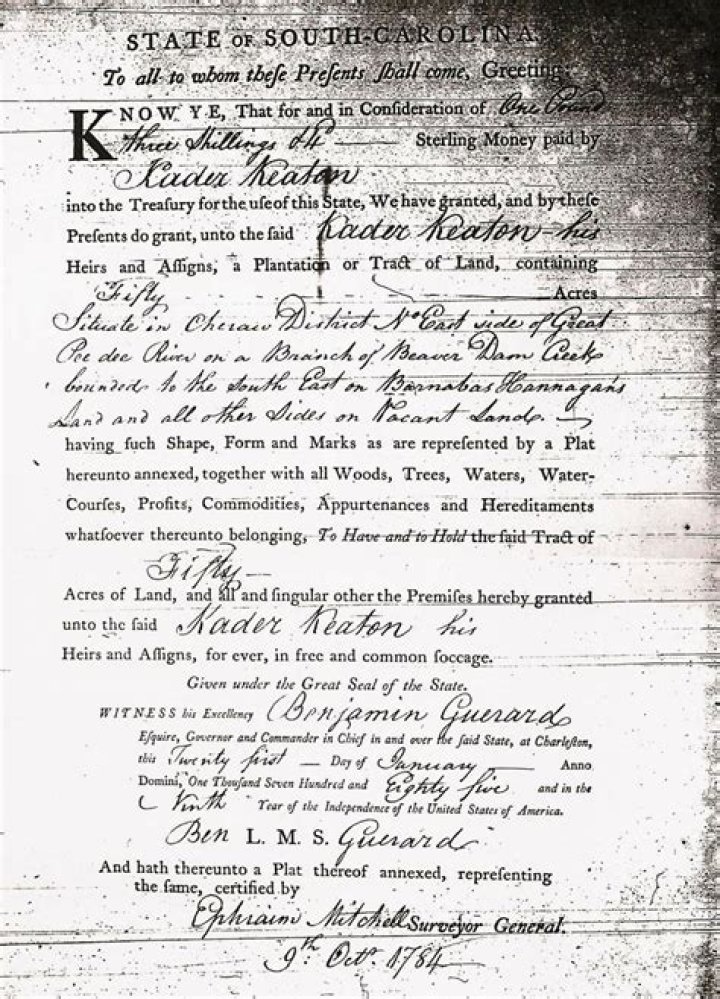 STATE OF SOUTH-CAROLINA.
To all to whom theſe Preſents ſhall come, Greeting
KNOW YE, That for and in Conſideration of One Pound
three Shillings &4d Sterling Money paid by
Kader Keaton
into the Treaſury for the uſe of this State, We have granted, and by theſe
Preſents do grant, unto the ſaid Kader Keaton - his
Heirs and Aſſigns, a Plantation or Tract of Land, containing
Fifty Acres
Situate in Cheraw District No. East side of Great
Pee dee River on a Branch of Beaver Dam Creek
bounded to the South East on Barnabas Hannagan's
Land and all other Sides on Vacant Land. —
having ſuch Shape, Form and Marks as are repreſented by a Plat
hereunto annexed, together with all Woods, Trees, Waters, Water-
Courſes, Profits, Commodities, Appurtenances and Hereditaments
whatſoever thereunto belonging, To Have and to Hold the ſaid Tract of
Fifty —
Acres of Land, and all and ſingular other the Premiſes hereby granted
unto the ſaid Kader Keaton his
Heirs and Aſſigns, for ever, in free and common ſoccage.
Given under the Great Seal of the State.
WITNESS his Excellency Benjamin Guerard
Eſquire, Governor and Commander in Chief in and over the ſaid State, at Charleſton,
this Twenty first — Day of January — Anno
Domini, One Thouſand Seven Hundred and Eighty five and in the
Ninth Year of the Independence of the United States of America.
Ben L. M. S. Guerard
And hath thereunto a Plat thereof annexed, repreſenting
the ſame, certified by
Ephraim Mitchell Surveyor General.
9th Octr. 1784